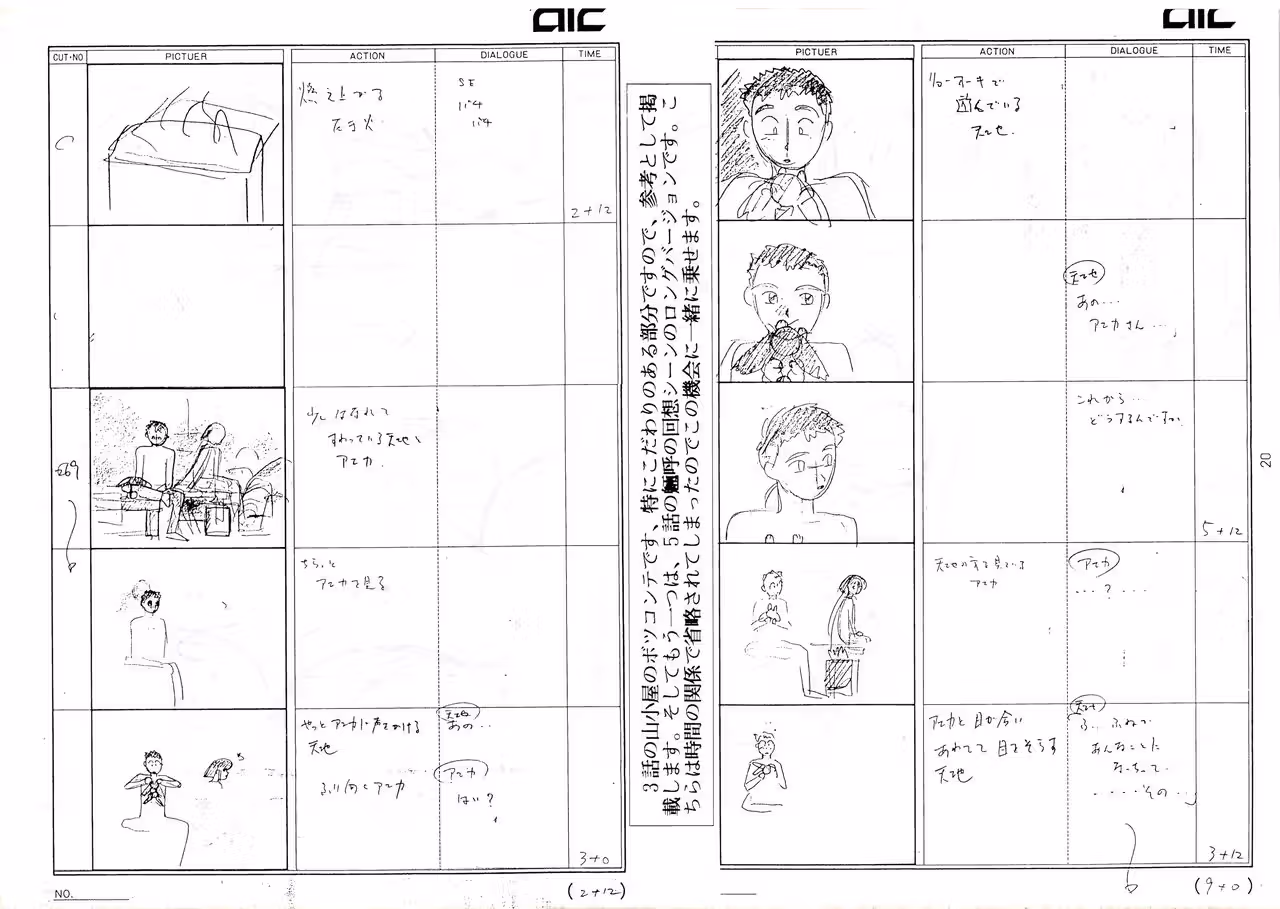 aic
CUT・NO
PICTUER
ACTION
DIALOGUE
TIME
C
燃え上がる
たき火
SE
パチ
パチ
2+12
269
少しはなれて
すわっている天地と
アエカ.
ちらっと
アエカを見る
やっとアエカに声をかける
天地
ふり向くアエカ
天地
あの…
アエカ
はい?
3+0
NO.
(2+12)
3話の山小屋のボツコンテです、特にこだわりのある部分ですので、参考として掲
載します。そしてもう一つは、5話の魎呼の回想シーンのロングバージョンです。こ
ちらは時間の関係で省略されてしまったのでこの機会に一緒に乗せます。
aic
PICTUER
ACTION
DIALOGUE
TIME
天地.
天地
あの…
アエカさん…」
これから…
どうするんですか
5+12
天地の方を見ている
アエカ
アエカ
…?…
アエカと目が合い
あわてて目をそらす
天地
天地
ふ…ふねで
あんなことに
なっちって
・・・・・その…」
3+12
(9+0)
20